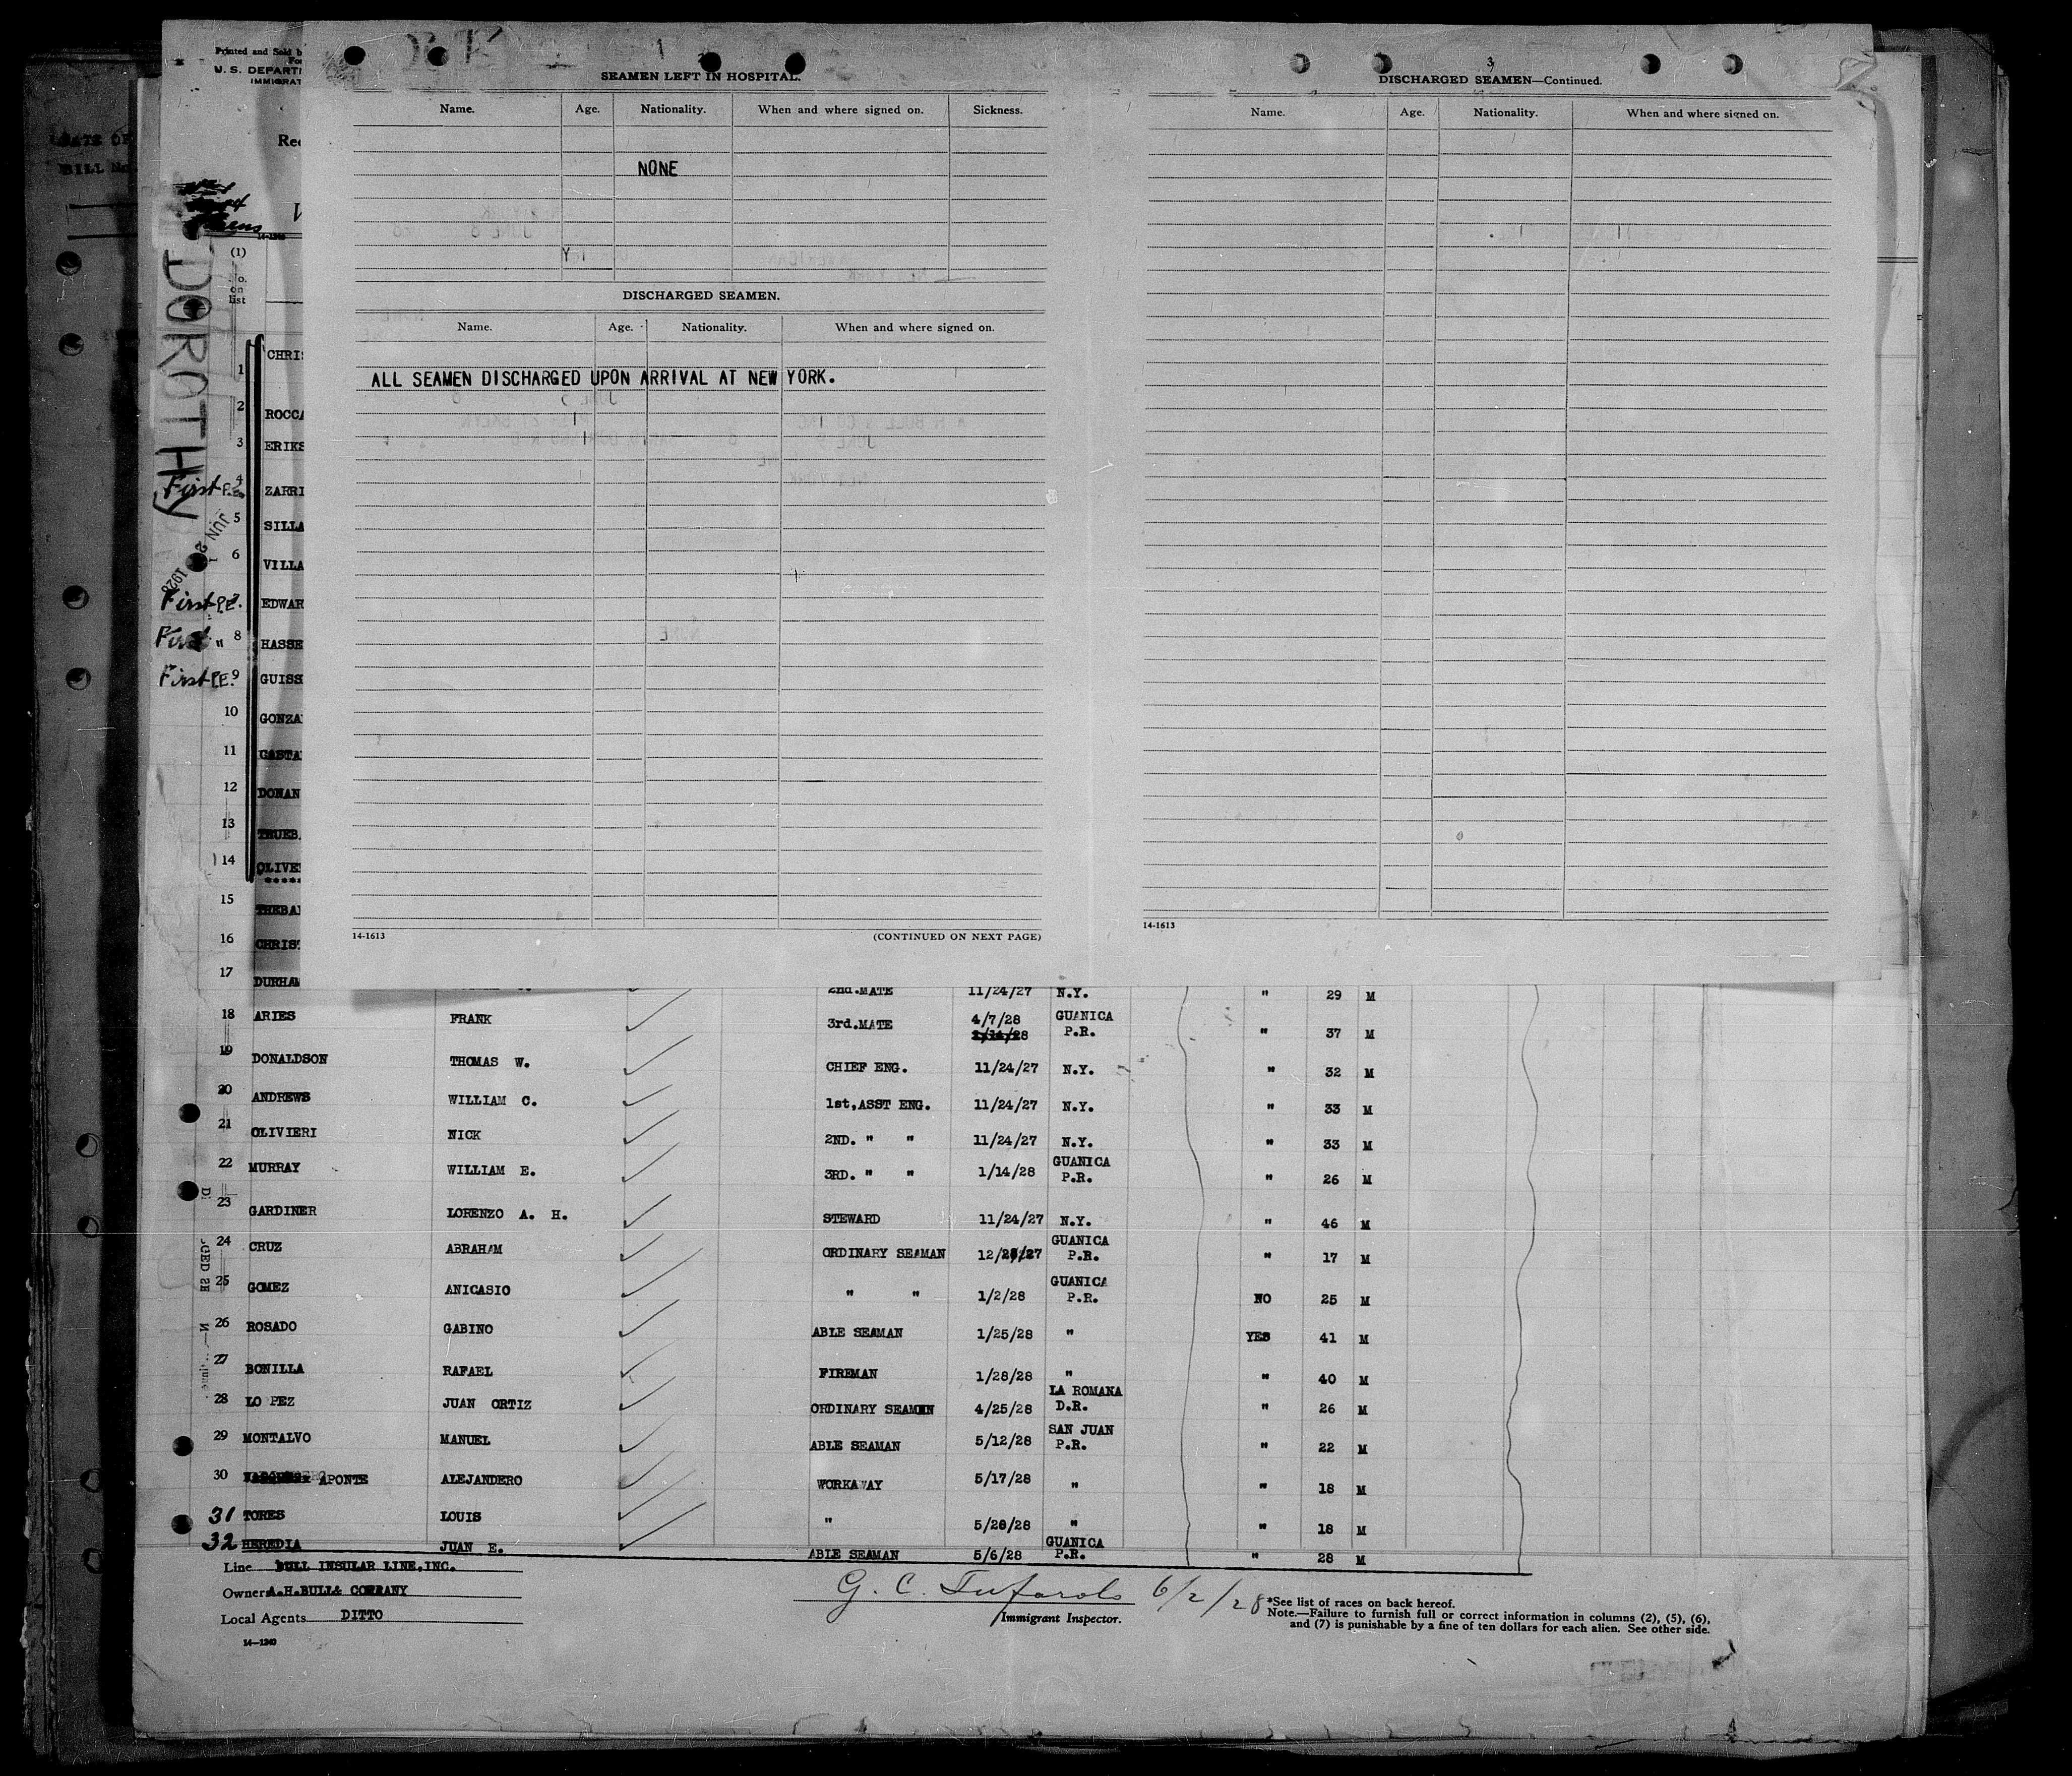 Printed and Sold b
U. S. DEPARTM
IMMIGRAT
Rec
BILL No
DOROTHY
JUN 2 1928
2
SEAMEN LEFT IN HOSPITAL.
Name. Age. Nationality. When and where signed on. Sickness.
NONE
DISCHARGED SEAMEN.
Name. Age. Nationality. When and where signed on.
ALL SEAMEN DISCHARGED UPON ARRIVAL AT NEW YORK.
14-1613
(CONTINUED ON NEXT PAGE)
3
DISCHARGED SEAMEN—Continued.
Name. Age. Nationality. When and where signed on.
14-1613
(1)
No. on list
1 CHRIS
2 ROCCA
3 ERIKS
First P.E. 4 ZARRI
5 SILLA
6 VILLA
First P.E. 7 EDWAR
First " 8 HASSE
First P.E. 9 GUISS
10 GONZA
11 CASTA
12 DONAN
13 TRUEB
14 OLIVE
*****
15 THEBA
16 CHRIS
17 DURHAM 2nd.MATE 11/24/27 N.Y. " 29 M
18 ARIES FRANK 3rd.MATE 4/7/28 GUANICA P.R. " 37 M
19 DONALDSON THOMAS W. CHIEF ENG. 11/24/27 N.Y. " 32 M
20 ANDREWS WILLIAM C. 1st,ASST ENG. 11/24/27 N.Y. " 33 M
21 OLIVIERI NICK 2ND. " " 11/24/27 N.Y. " 33 M
22 MURRAY WILLIAM E. 3RD. " " 1/14/28 GUANICA P.R. " 26 M
23 GARDINER LORENZO A. H. STEWARD 11/24/27 N.Y. " 46 M
24 CRUZ ABRAHAM ORDINARY SEAMAN 12/28/27 GUANICA P.R. " 17 M
25 GOMEZ ANICASIO " " 1/2/28 GUANICA P.R. NO 25 M
26 ROSADO GABINO ABLE SEAMAN 1/25/28 " YES 41 M
27 BONILLA RAFAEL FIREMAN 1/28/28 " " 40 M
28 LOPEZ JUAN ORTIZ ORDINARY SEAMEN 4/25/28 LA ROMANA D.R. " 26 M
29 MONTALVO MANUEL ABLE SEAMAN 5/12/28 SAN JUAN P.R. " 22 M
30 APONTE ALEJANDERO WORKAWAY 5/17/28 " " 18 M
31 TORES LOUIS " 5/28/28 " " 18 M
32 HEREDIA JUAN E. ABLE SEAMAN 5/6/28 GUANICA P.R. " 28 M
Line BULL INSULAR LINE,INC.
Owners A.H.BULL& COMPANY
Local Agents DITTO
14—1240
G. C. 6/2/28
Immigrant Inspector.
*See list of races on back hereof.
Note.—Failure to furnish full or correct information in columns (2), (5), (6),
and (7) is punishable by a fine of ten dollars for each alien. See other side.